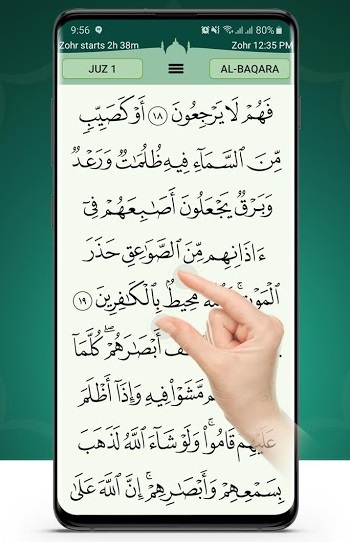 9:56 80%
Zohr starts 2h 38m Zohr 12:35 PM
JUZ 1 AL-BAQARA
فَهُمْ لَا يَرْجِعُونَ ١٨ أَوْ كَصَيِّبٍ
مِّنَ ٱلسَّمَآءِ فِيهِ ظُلُمَٰتٌ وَرَعْدٌ
وَبَرْقٌ يَجْعَلُونَ أَصَٰبِعَهُمْ فِىٓ
ءَاذَانِهِم مِّنَ ٱلصَّوَٰعِقِ حَذَرَ
مُحِيطٌۢ بِٱلْكَٰفِرِينَ ١٩
أَبْصَٰرَهُمْ ۖ كُلَّمَآ
مَّشَوْا۟ فِيهِ وَإِذَآ أَظْلَمَ
عَلَيْهِمْ قَامُوا۟ ۚ وَلَوْ شَآءَ ٱللَّهُ لَذَهَبَ
بِسَمْعِهِمْ وَأَبْصَٰرِهِمْ ۚ إِنَّ ٱللَّهَ عَلَىٰ